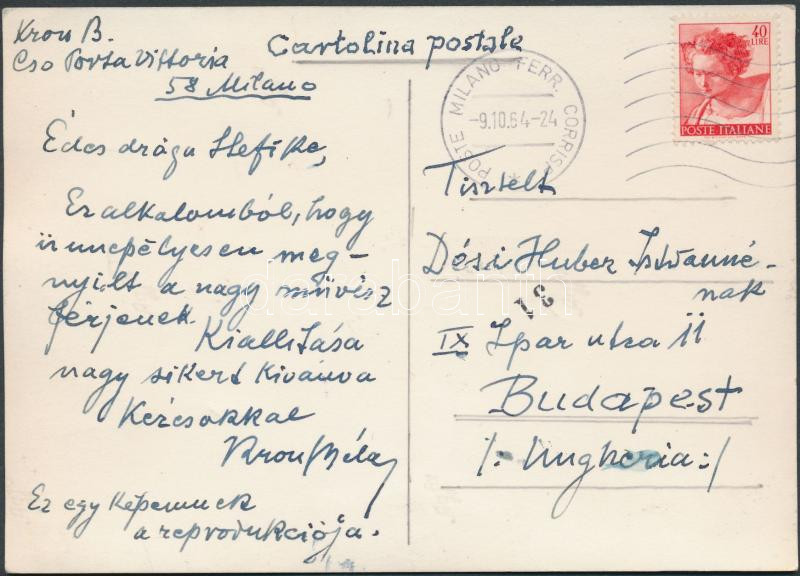 Kron B.
Cso Porta Vittoria
58 Milano
Cartolina postale
POSTE MILANO FERR. CORRISP.
-9.10.64-24
40
LIRE
POSTE ITALIANE
Édes drága Stefike,
Ez alkalomból, hogy
ünnepélyesen meg-
nyilt a nagy művész
férjenek
Kiallitása
nagy sikert Kivánva
Kézcsokkal
Kron Béla
Ez egy Képemnek
a reprodukciója.
Tisztelt
Dési Huber Istvánné-
nak
31
IX Ipar utca 11
Budapest
/: Ungheria :/
darabanth